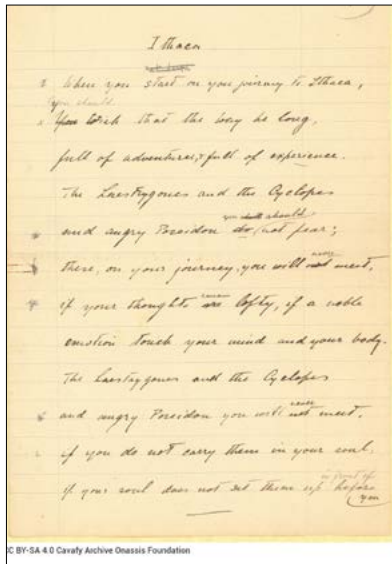 Ithaca
When you start on your journey to Ithaca,
you should
You wish that the way be long,
full of adventures, full of experience.
The Laestrygones and the Cyclopes
you shall should
and angry Poseidon do not fear;
never
these, on your journey, you will not meet,
remain
if your thoughts are lofty, if a noble
emotion touch your mind and your body.
The Laestrygones and the Cyclopes
never
and angry Poseidon you will not meet,
if you do not carry them in your soul,
in front of
if your soul does not set them up before
you
CC BY-SA 4.0 Cavafy Archive Onassis Foundation